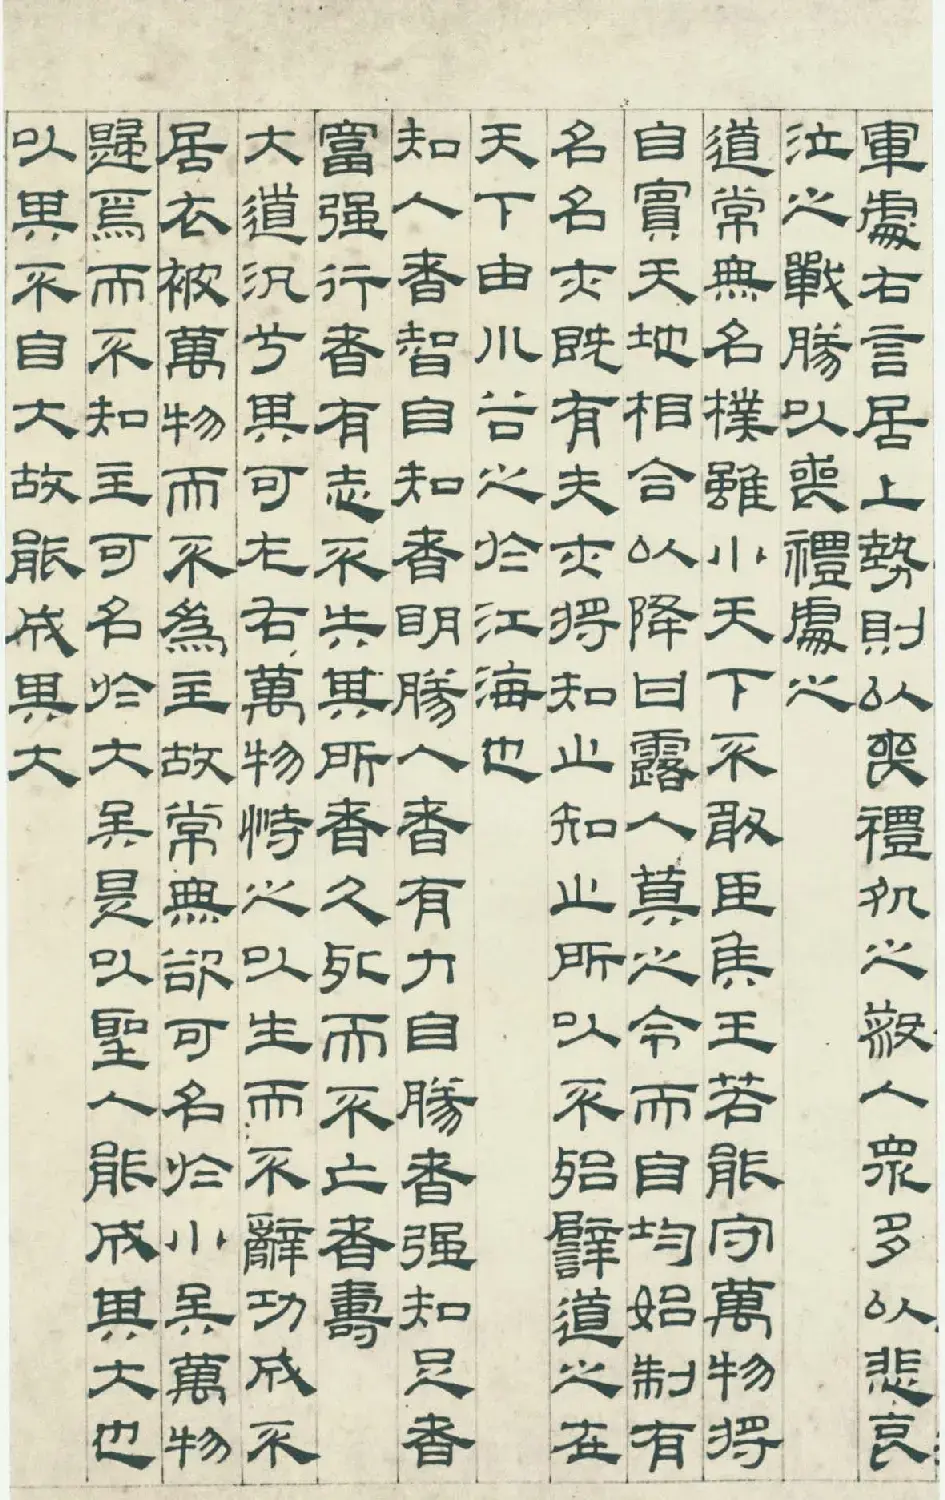 軍處右言居上勢則以喪禮處之殺人眾多以悲哀
泣之戰勝以喪禮處之
道常無名樸雖小天下不敢臣侯王若能守萬物將
自賓天地相合以降甘露人莫之令而自均始制有
名名亦既有夫亦將知止知止所以不殆譬道之在
天下由川谷之於江海也
知人者智自知者明勝人者有力自勝者强知足者
富强行者有志不失其所者久死而不亡者壽
大道汎兮其可左右萬物恃之以生而不辭功成不
居衣被萬物而不為主故常無欲可名於小矣萬物
歸焉而不知主可名於大矣是以聖人能成其大也
以其不自大故能成其大